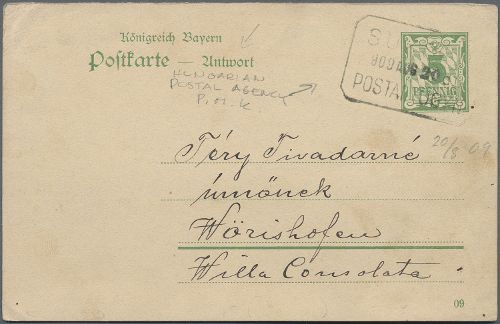 Königreich Bayern
Postkarte — Antwort
HUNGARIAN
POSTAL AGENCY
P.M.K
909 AUG 20
POSTAL
PFENNIG
20/8 09
Téry Tivadarné
úrnőnek
Wörishofen
Willa Consolata
09